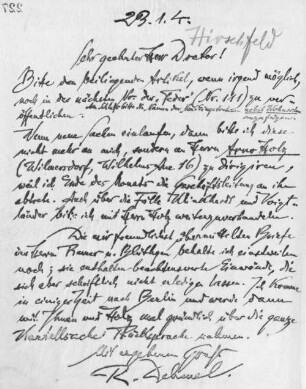 29.1.4.
Hirschfeld
Sehr geehrter Herr Doctor!
Bitte den beiliegenden Artikel, wenn irgend möglich,
noch in der nächsten Nr. der "Feder" (Nr. 141) zu ver-
öffentlichen.
Wenn neue Sachen einlaufen, dann bitte ich diese
nicht mehr an mich, sondern an Herrn Arno Holz
(Wilmersdorf, Wilhelms-Aue 16) zu dirigiren,
weil ich Ende des Monats die Geschäftsleitung an ihn
abtrete. Auch über die Fälle Ullstein und Voigt-
länder bitte ich mit Herrn Holz weiterzuverhandeln.
Die mir freundlichst übermittelten Briefe
der Herren und Blüthgen behalte ich einstweilen
noch; sie enthalten beachtenswerte Einwände, die
sich aber schriftlich nicht erledigen lassen. Ich komme
in einiger Zeit nach Berlin und werde dann
mit Ihnen und Holz mal gründlich über die ganze
Kartellsache Rücksprache nehmen.
Mit ergebenem Gruß
R. Dehmel.